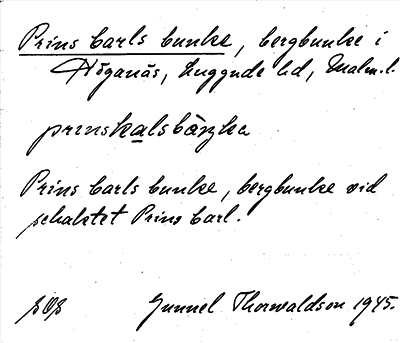 Prins Carls bunke, bergbunke i
Höganäs, Luggude hd, Malm. l.
prinskalsbåŋka
Prins Carls bunke, bergbunke vid
schaktet Prins Carl.
Gunnel Thorwaldson 1945.